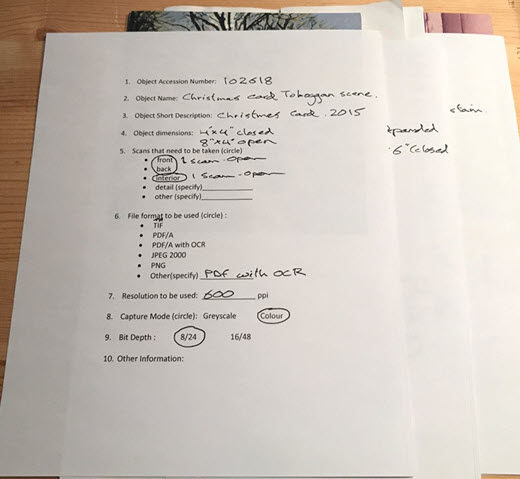 1. Object Accession Number: 102618
2. Object Name: Christmas card Toboggan scene.
3. Object Short Description: Christmas Card. 2015
stain.
4. Object dimensions: 4"x4" closed
8"x4" open
expanded
5. Scans that need to be taken (circle)
6" closed
• front 1 scan - open
• back
• interior 1 scan - open
• detail (specify)
• other (specify)
6. File format to be used (circle) :
• TIF
• PDF/A
• PDF/A with OCR
• JPEG 2000
• PNG
• Other(specify) PDF with OCR
7. Resolution to be used: 600 ppi
8. Capture Mode (circle): Greyscale Colour
9. Bit Depth : 8/24 16/48
10. Other Information: